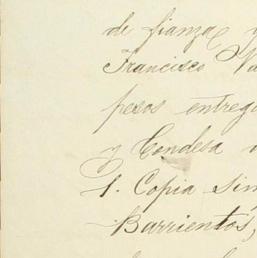 de fianza y
Francisco Va
pesos entreg
y Condesa
1. Copia sim
Barrientos,